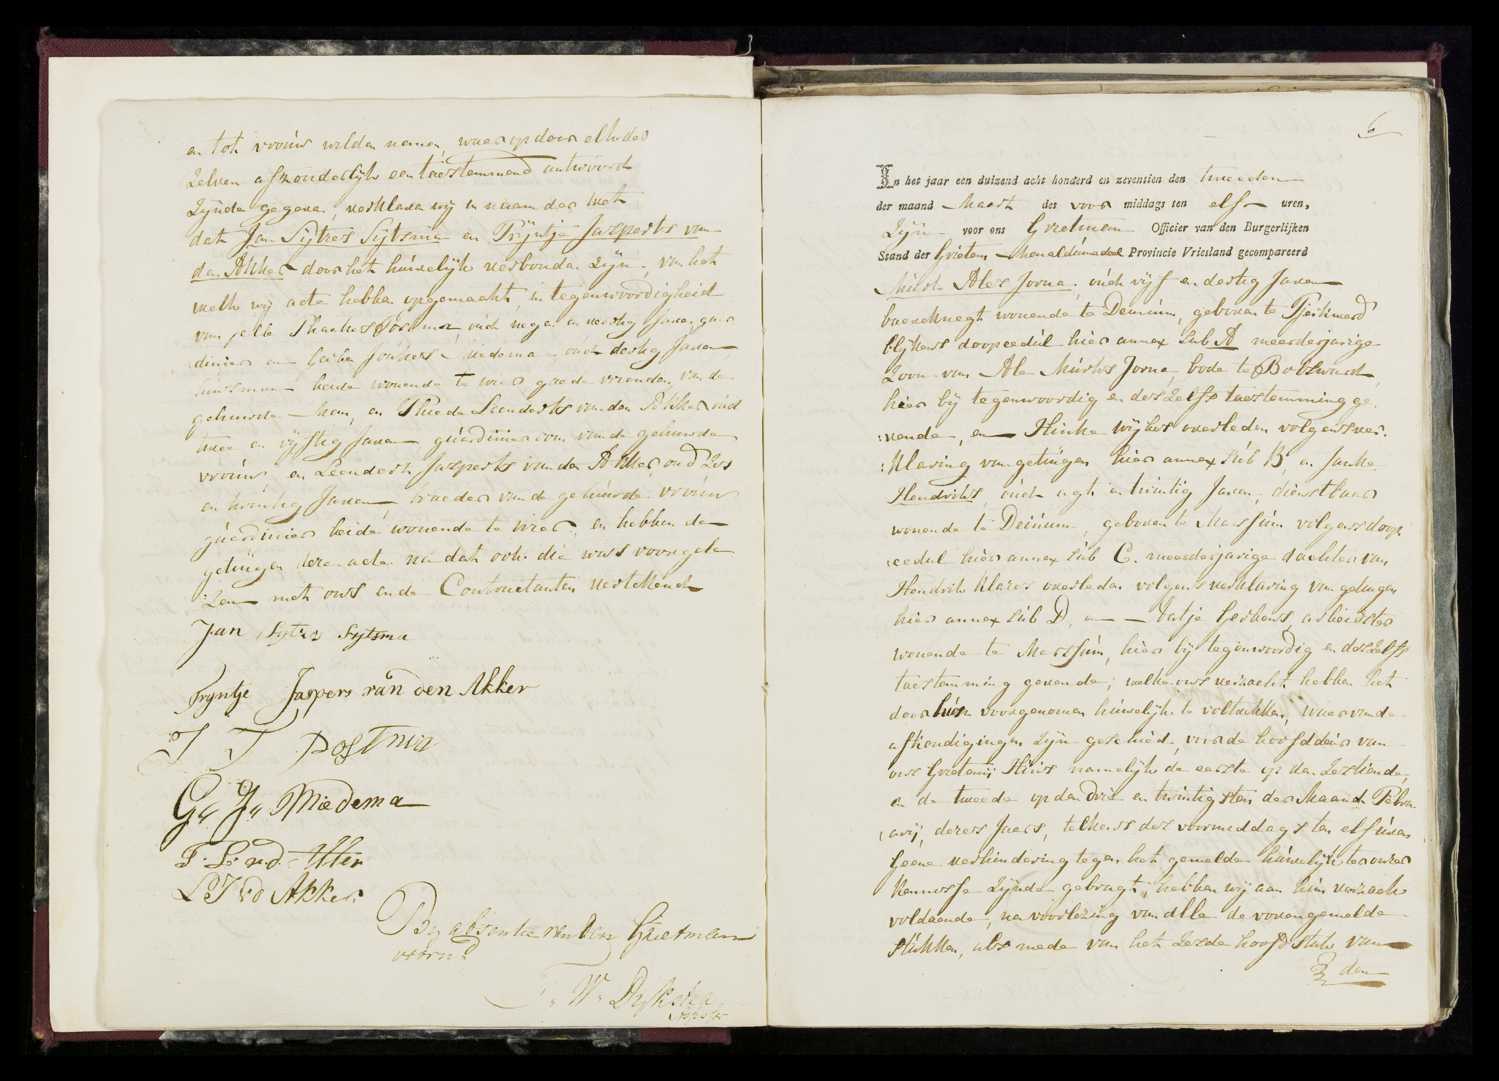 en tot vrouw wilden nemen, waar op door elk der
zelven afzonderlijk een toestemmend antwoord
zijnde gegeven, verklaren wij in naam der wet
dat Jan Sytzes Sytsma en Tryntje Jaspers van
den Akker door het huwelijk verbonden zijn, van het
welke wij acte hebben opgemaakt, in tegenwoordigheid
van Jelle Postma oud negen en veertig Jaren, guar
dinier en Miedema oud dertig Jaren
beide wonende te Wier goede vrienden van de
gehuwde Man, en Leenderts van den Akker oud
twee en vijftig Jaren guardinier oom van de gehuwde
vrouw, en Leendert Jaspers van den Akker, oud zes
en twintig Jaren, broeder van de gehuwde vrouw
guardinier beide wonende te Wier, en hebben de
getuigen deze acte na dat ook die was voorgele
:zen met ons en de Contractanten vertekend
Jan Sytzes Sytsma
Tryntje Jaspers van den Akker
J T Postma
G J Miedema
L J v d Akker
By absentie van den Grietman
W Dykstra
6
In het jaar een duizend acht honderd en zeventien den tweeden
der maand Maart des voor middags ten elf uren,
Zijn voor ons Grietman Officier van den Burgerlijken
Stand der Grietenij Menaldumadeel Provincie Vriesland gecompareerd
Murk Ales Jorna, oud vijf en dertig Jaren
boereknegt wonende te Deinum, geboren te Tjerkwerd
blijkens doopcedul hier annex sub A meerderjarige
Zoon van Ale Murks Jorna, bode te Bolsward,
hier bij tegenwoordig en deszelfs toestemming ge
:vende, en Hinke Wijkes overleden volgens ver:
:klaring van getuigen hier annex sub B, en Janke
Hendriks, oud agt en twintig Jaren, dienstbaar
wonende te Deinum geboren te Marssum volgens doop
:cedul hier annex sub C. meerderjarige dochter van
Hendrik Klazes overleden volgens verklaring van getuigen
hier annex sub D, en Gerbens, arbeidster
wonende te Marssum, hier bij tegenwoordig en deszelfs
toestemming gevende; welke ons verzocht hebben het
door hun voorgenomen huwelijk te voltrekken, waar van de
afkondigingen zijn geschied, voor de hoofddeur van
ons Grietenij Huis namelijk de eerste op den zestiende,
en de tweede op den drie en twintigsten der Maand Febru
:arij, dezes Jaars, telkens des voormiddags ten elf uren,
Geene verhindering tegen het gemelde huwelijk ter onzer
kennisse zijnde gebragt, hebben wij aan hun verzoek
voldoende, na voorlezing van alle de vorengemelde
stukken, als mede van het zesde hoofdstuk van
den